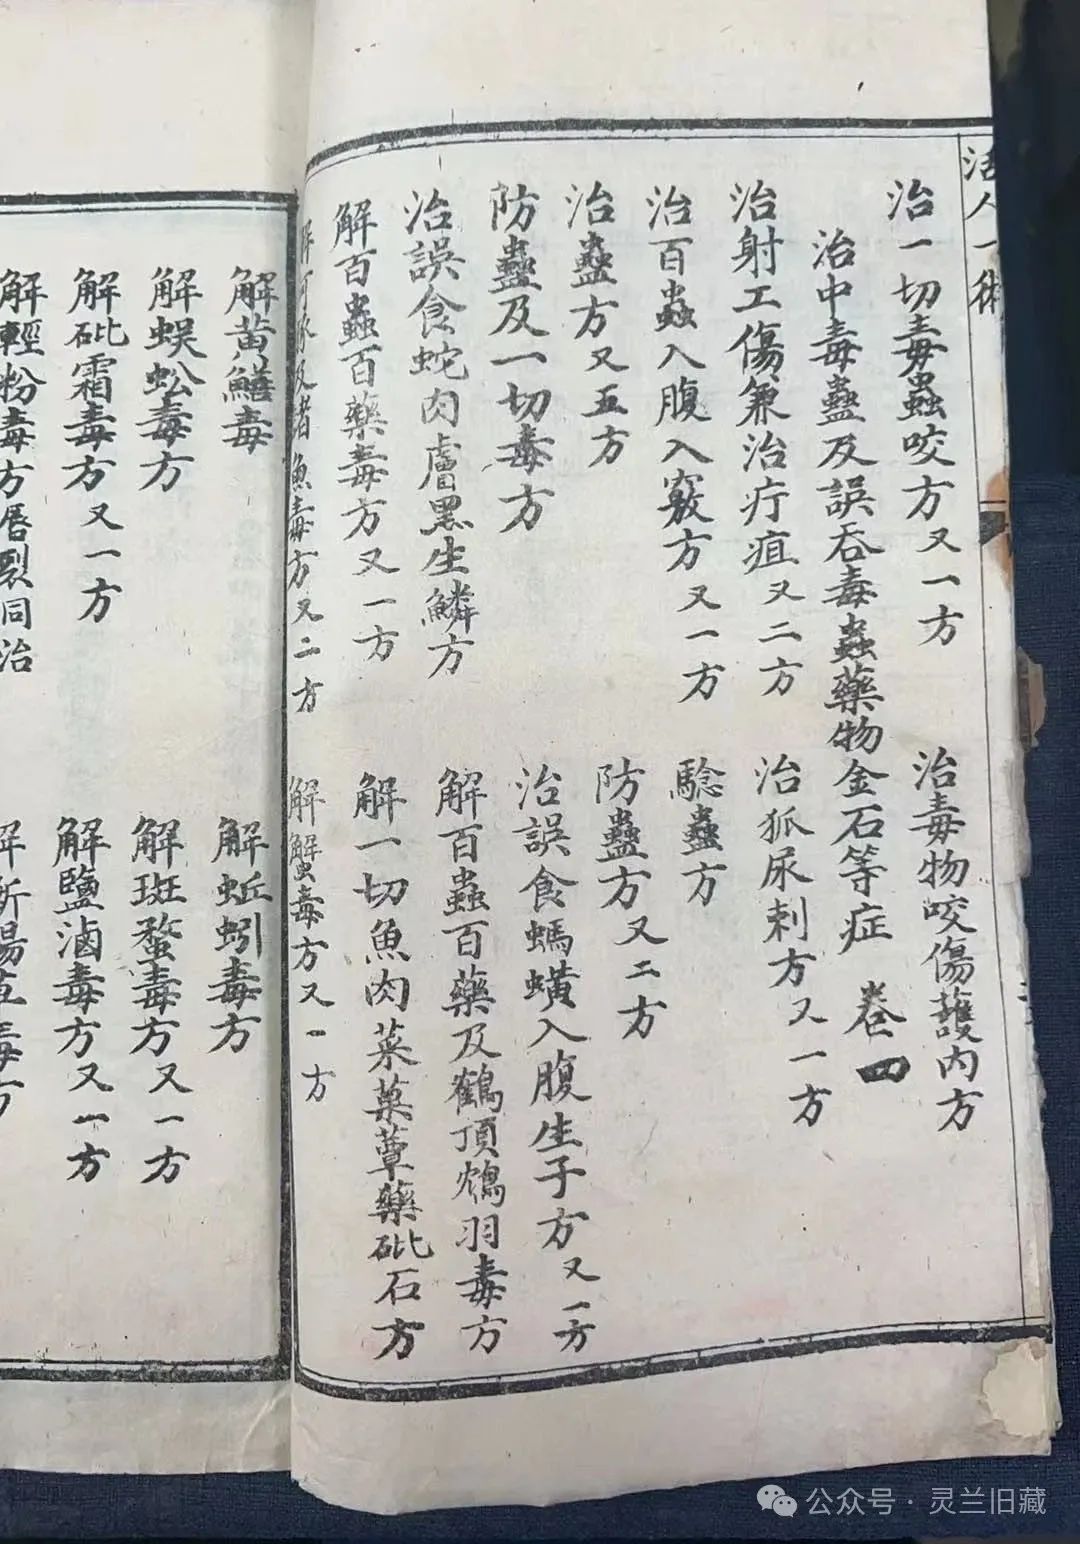 活人一術
治一切毒蟲咬方又一方
治毒物咬傷護內方
治中毒蠱及誤吞毒蟲藥物金石等症 卷四
治射工傷兼治疔疽又二方
治狐尿刺方又一方
治百蟲入腹入竅方又一方
驗蠱方
治蠱方又五方
防蠱方又二方
防蠱及一切毒方
治誤食螞蟥入腹生子方又一方
治誤食蛇肉膚黑生鱗方
解百蟲百藥及鶴頂鴆羽毒方
解百蟲百藥毒方又一方
解一切魚肉菜菓蕈藥砒石方
解河豚及諸魚毒方又二方
解蟹毒方又一方
解黃鱔毒
解蚯蚓毒方
解蜈蚣毒方
解斑蝥毒方又一方
解砒霜毒方又一方
解鹽滷毒方又一方
解輕粉毒方唇裂同治
解斷腸草毒方
公众号·灵兰旧藏